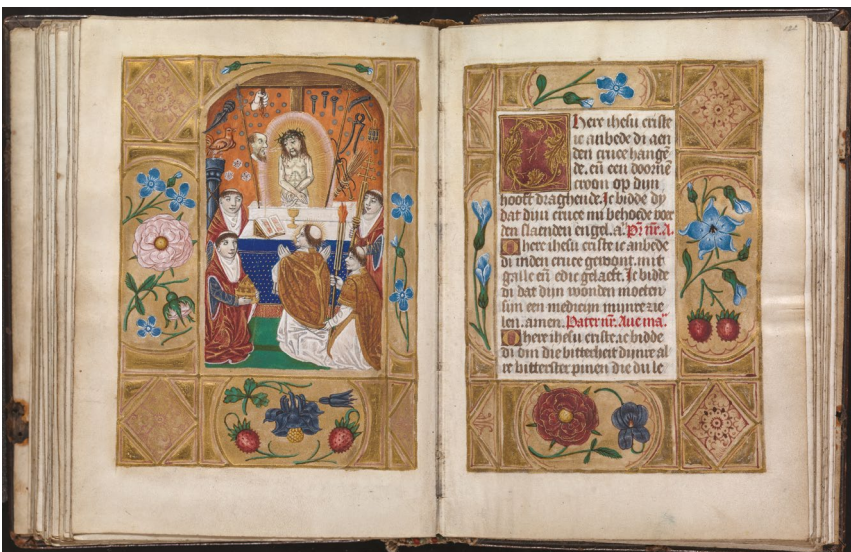 Here ihesu criste
ic anbede di aen
den cruce hangē
de. eñ een doornē
croon op dijn
hooft draghende. Ic bidde dy
dat dijn cruce mi behoede voor
den slaenden engel. a. Pr̄ nr̄. A.
O here ihesu criste ic anbede
di inden cruce gewont. mit
galle eñ edic gelaeft. Ic bidde
di dat dijn wonden moeten
sijn een medicijn mijnre zie
len. amen. Pater nr̄. Aue ma.
O here ihesu criste. ic bidde
di om die bitterheit dijnre al
re bitterster pinen die du le